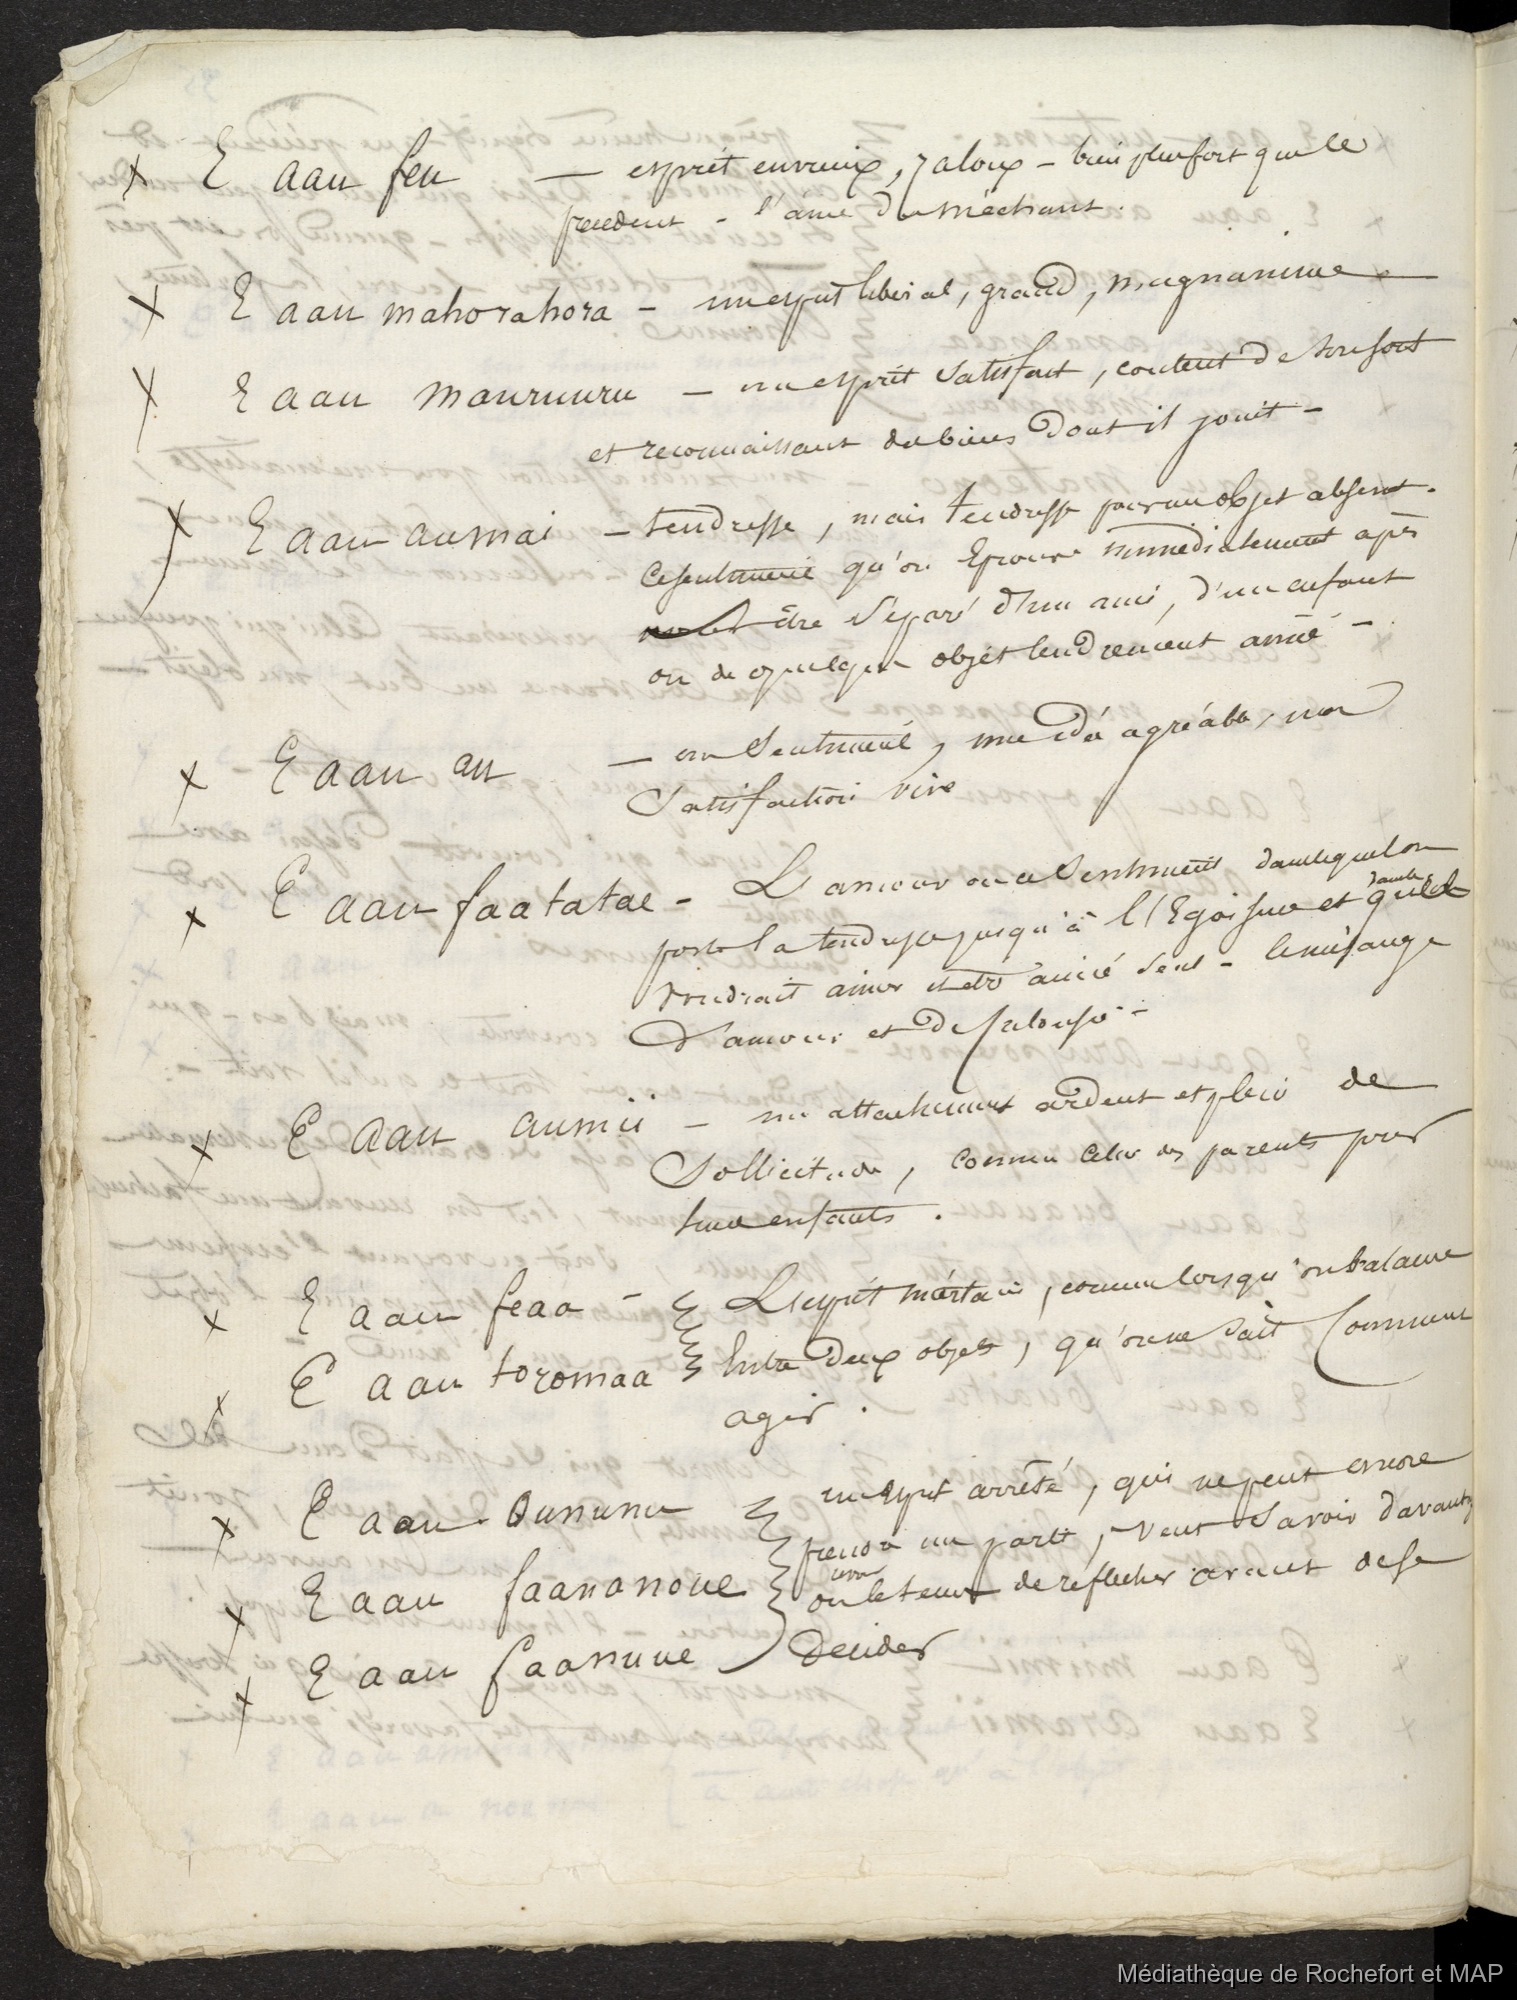 x E aau feu — esprit envieux, jaloux - bien plus fort que le
precedent - l'âme du méchant.
x E aau mahorahora - un esprit liberal, grand, magnanime -
x E aau mauruuru - un esprit satisfait, content de son sort
et reconnaissant des biens dont il jouit -
x E aau aumai - tendresse, mais tendresse pour un objet absent.
ce sentiment qu'on éprouve immédiatement après
être séparé d'un ami, d'un enfant
ou de quelque objet tendrement aimé -
x E aau au — un sentiment, une idée agréable, une
satisfaction vive
x E aau faatatae - L'amour ou ce sentiment dans lequel on
porte la tendresse jusqu'à l'Egoisme et dans lequel
voudrait aimer et être aimé seul - le mélange
d'amour et de jalousie -
x E aau aumii - un attachement ardent et plein de
sollicitude, comme celui des parents pour
leurs enfants.
x E aau feaa - L'esprit incertain, comme lorsqu'on balance
x E aau toromaa entre deux objets, qu'on ne sait comment
agir.
x E aau Oununu un esprit arrêté, qui ne peut encore
prendre un parti, veut savoir davantage
x E aau faananoue ou le tems de réflechir avant de se
x E aau faanuue décider
Médiathèque de Rochefort et MAP